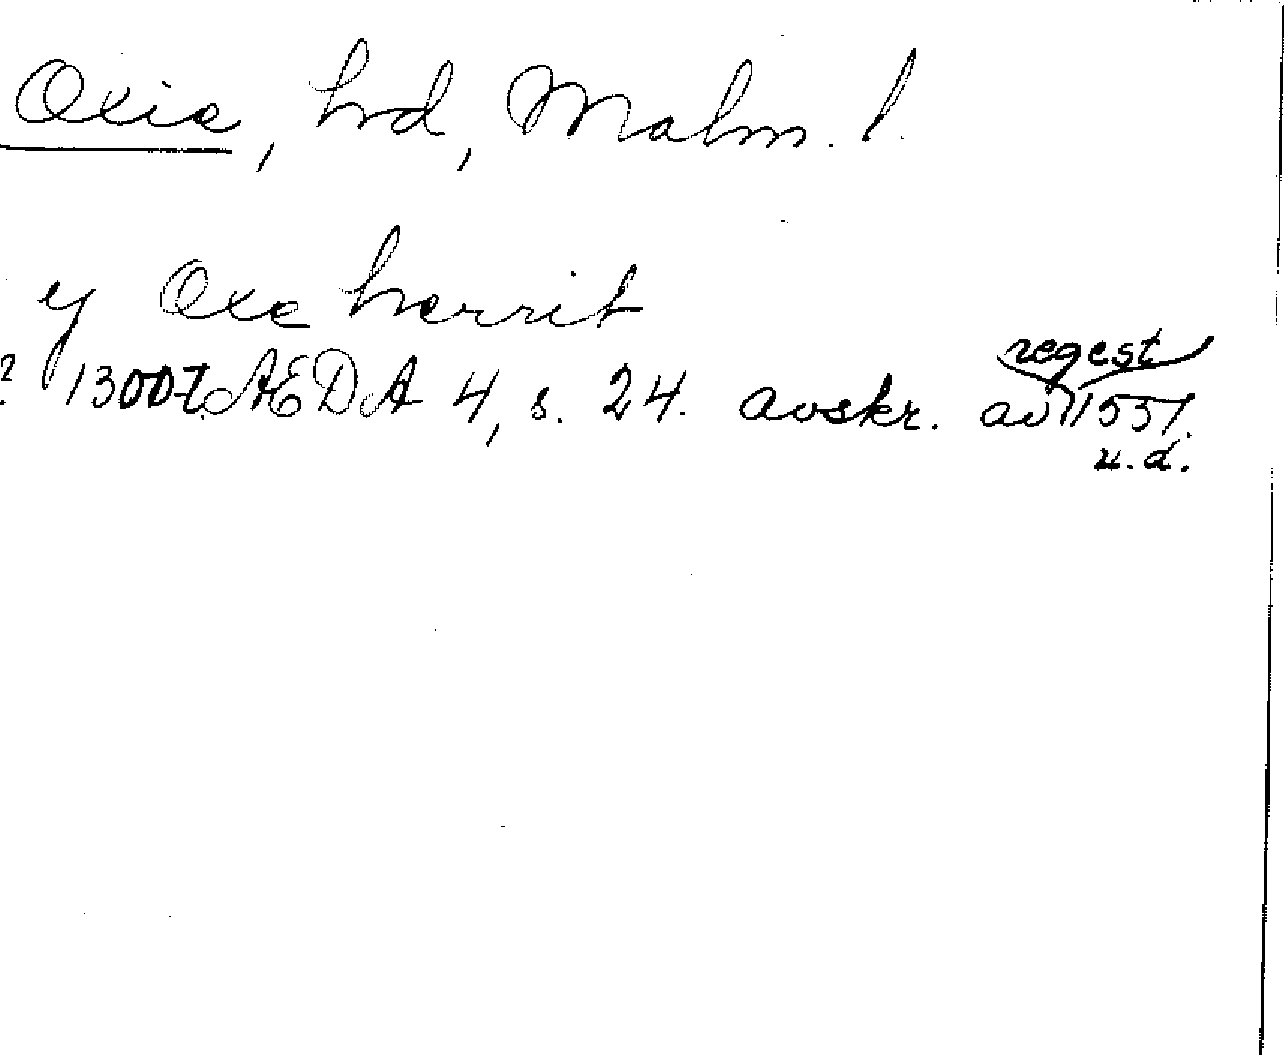 Oxie, hrd, Malm. l.
y Oxe herrit
? 1300-t. ÆDA 4, s. 24. avskr. av regest 1551.
u.d.